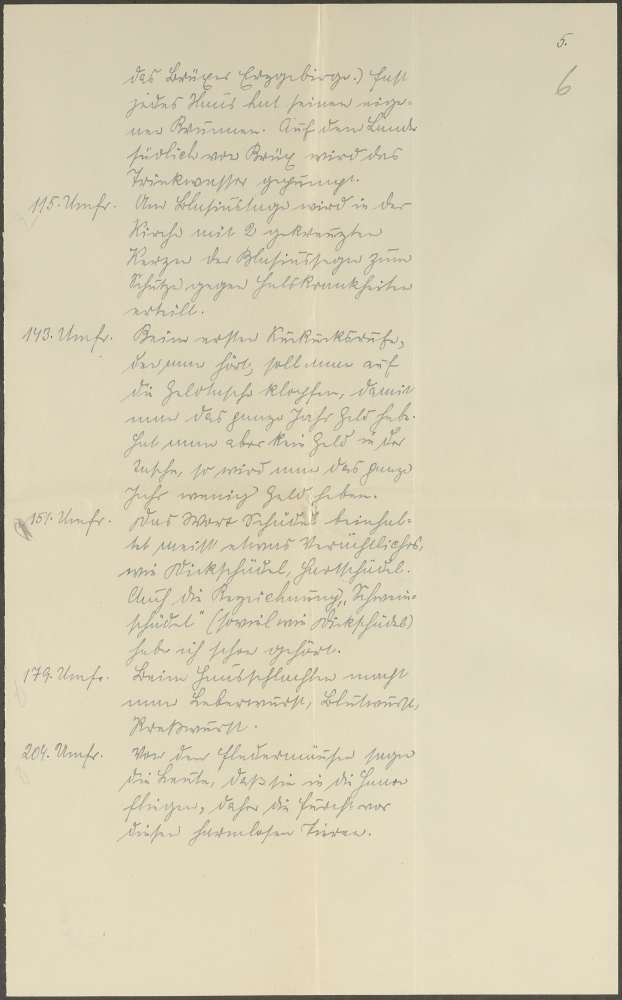 5.
6
das Brüxer Erzgebirge.) Fast
jedes Haus hat seinen eige-
nen Brunnen. Auf dem Lande
südlich von Brüx wird das
Trinkwasser gepumpt.
115. Umfr. Am Blasiustage wird in der
Kirche mit 2 gekreuzten
Kerzen der Blasiussegen zum
Schutze gegen Halskrankheiten
erteilt.
143. Umfr. Beim ersten Kuckucksrufe,
den man hört, soll man auf
die Geldtasche klopfen, damit
man das ganze Jahr Geld habe.
Hat man aber kein Geld in der
Tasche, so wird man das ganze
Jahr wenig Geld haben.
151. Umfr. Das Wort Schädel beinhal-
tet meist etwas Verächtliches,
wie Dickschädel, Hartschädel.
Auch die Bezeichnung „Schweins-
schädel" (soviel wie Dickschädel)
habe ich schon gehört.
179. Umfr. Beim Hausschlachten macht
man Leberwurst, Blutwurst,
Preßwurst.
204. Umfr. Von den Fledermäusen sagen
die Leute, daß sie in die Haare
fliegen, daher die Furcht vor
diesen harmlosen Tieren.